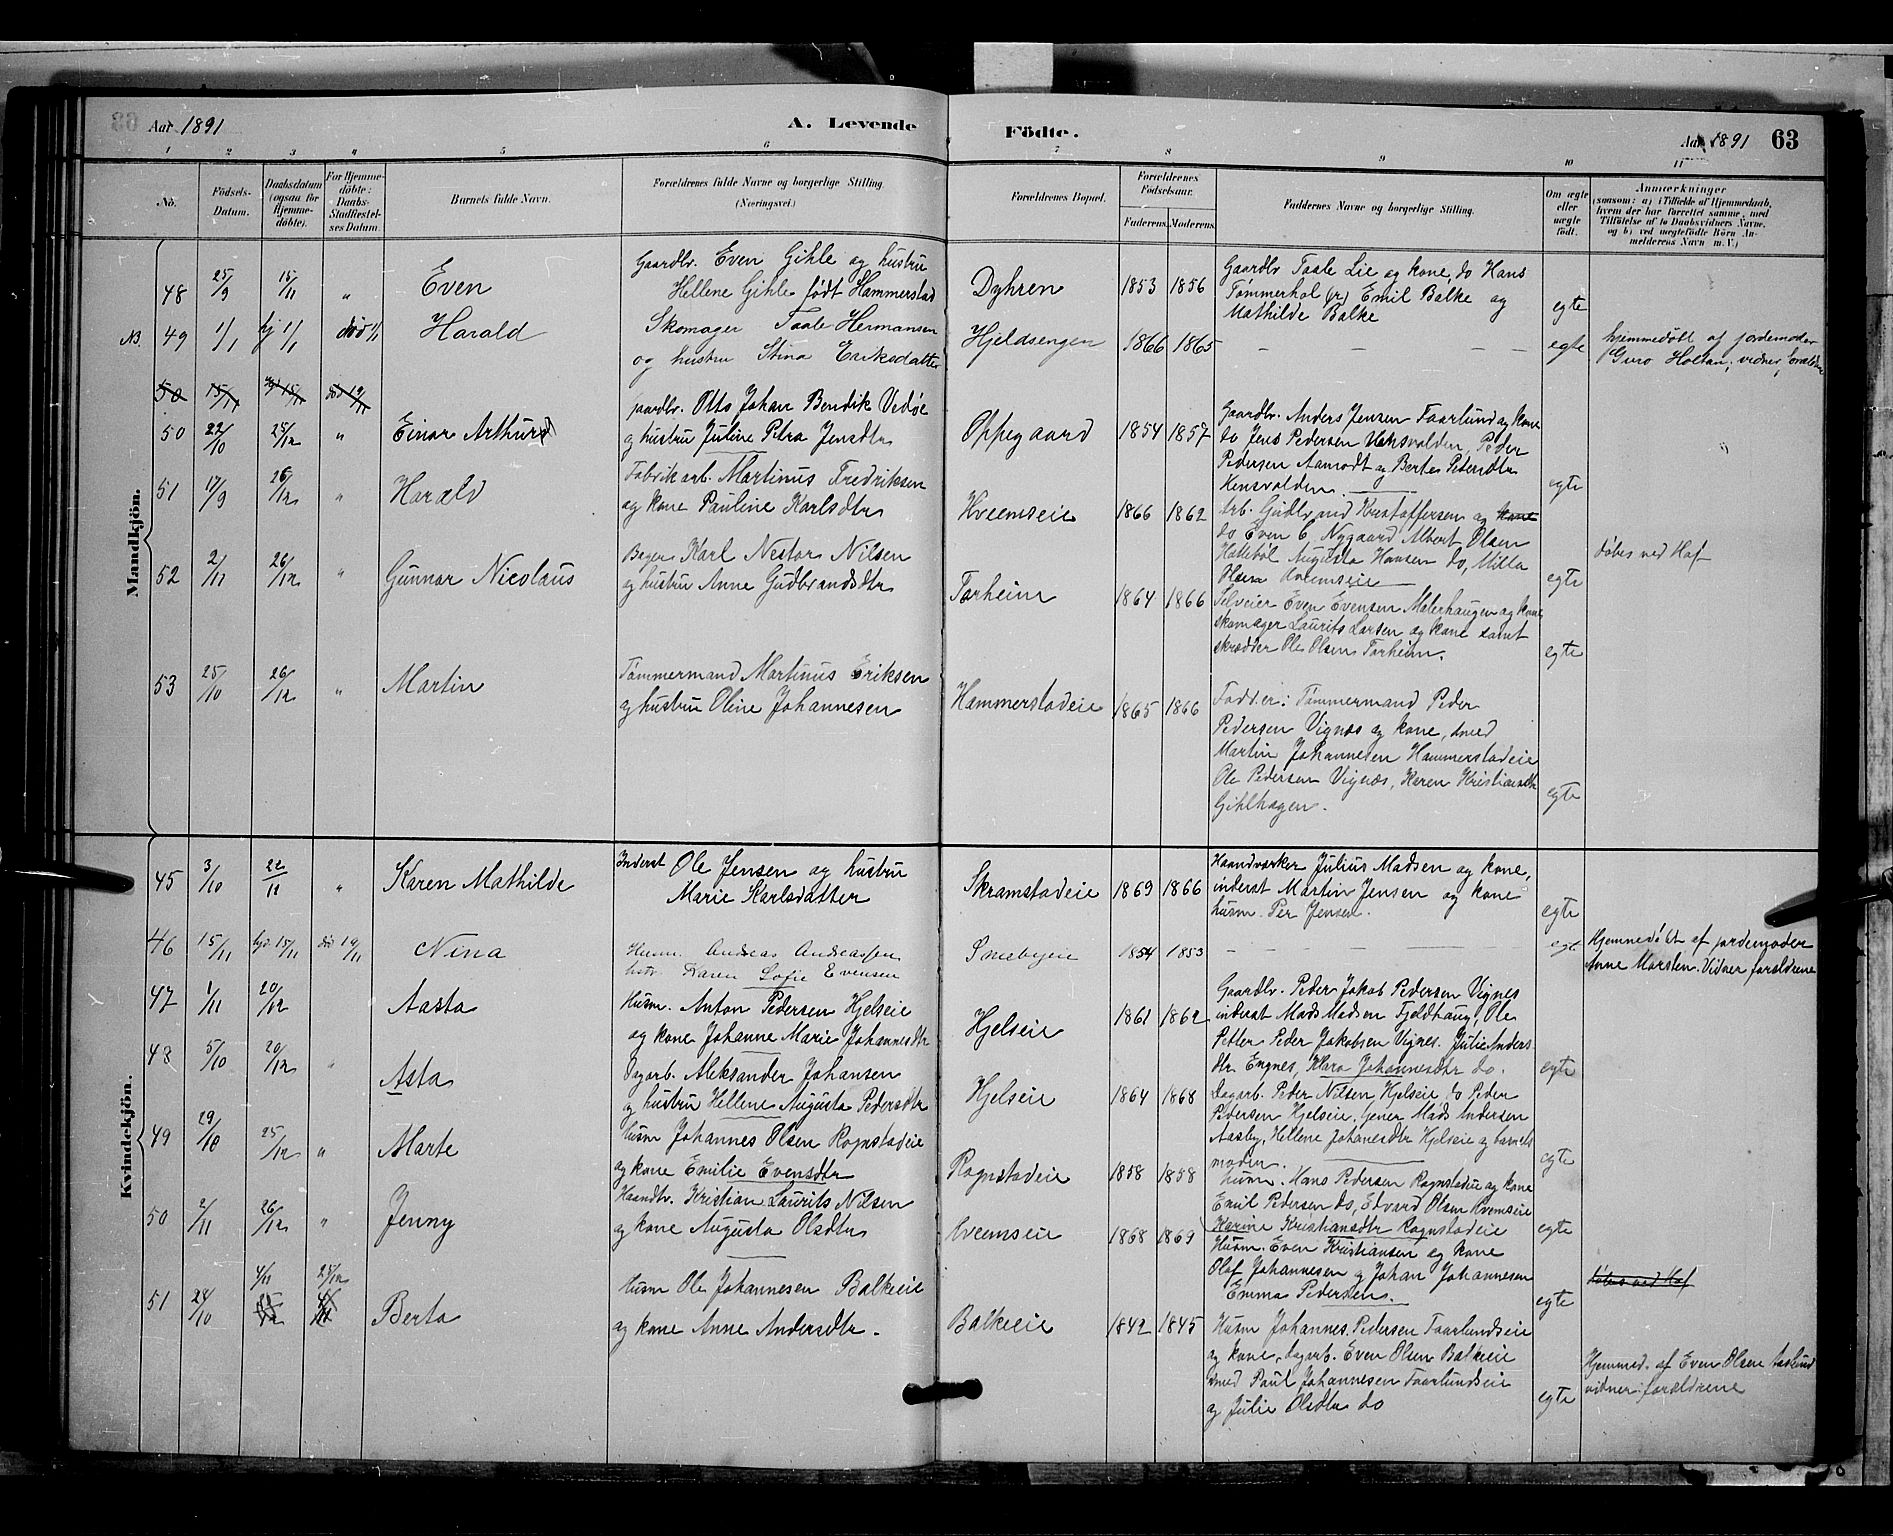 Aar 1891 A. Levende Födte. Aar 1891 63
1 2 3 4 5 6 7 8 9 10 11
No. Födsels-Datum. Daabsdatum (ogsaa for Hjemmedöbte). For Hjemmedöbte: Daabs-Stadfæstelses Datum. Barnets fulde Navn. Forældrenes fulde Navne og borgerlige Stilling. (Næringsvei.) Forældrenes Bopæl. Forældrenes Födselsaar. Faderens. Moderens. Faddernes Navne og borgerlige Stilling. Om ægte eller uægte födt. Anmærkninger (saasom: a) i Tilfælde af Hjemmedaab, hvem der har forrettet samme, med Tilföielse af to Daabsvidners Navne, og b) ved uægtefödte Börn Anmelderens Navn m. V.)
Mandkjön.
48 25/9 15/11 " Even Gaardbr. Even Gihle og hustru
Hellene Gihle født Hammerstad Dyhren 1853 1856 Gaardbr Taale Lie og kone, do Hans
Tømmerhol (r) Emil Balke og
Mathilde Balke egte
NB. 49 1/1 hj 1/1 død 1/1 Harald Skomager Taale Hermansen
og hustru Stina Eriksdatter Hjeldsengen 1866 1865 — — egte hjemmedøbt af jordemoder
Guro Holtan, vidner, forældre
50 15/11 hj 15/11 død 19/11
50 22/10 25/12 " Einar Arthur gaardbr. Otto Johan Bendik Vedøe
og hustru Juline Petra Jensdtr Oppegaard 1854 1857 Gaardbr. Anders Jensen Faarlund og kone
do Jens Pedersen Hensvolden, Peder
Pedersen Aamodt og Berte Pedersdtr
Hensvolden. egte "
51 17/9 26/12 " Harald Fabrikarb. Martinus Fredriksen
og kone Pauline Karlsdtr Kveemseie 1866 1862 Arb. Gudbrand Kristoffersen og kone
do Even C. Nygaard Albert Olsen
Hallebøl Augusta Hansen do, Milla
Olsen Kveemseie egte døbes ved Kaf
52 2/11 26/12 " Gunnar Nicolaus Bager Karl Nestor Nilsen
og hustru Anne Gudbrandsdtr Torheim 1864 1866 Selveier Even Evensen Malerhaugen og kone
skomager Laurits Larsen og kone samt
skrædder Ole Olsen Torheim. egte
53 25/10 26/12 " Martin Tømmermand Martinus Eriksen
og hustru Oline Johannesen Hammerstadeie 1865 1866 Fadder: Tømmermand Peder
Pedersen Vignæs og kone, smed
Martin Johannesen Hammerstadeie
Ole Pedersen Vignæs, Karen Kristiansdtr
Gihlhagen. egte
Kvindekjön.
45 3/10 22/11 " Karen Mathilde Inderst Ole Jensen og hustru
Marie Karlsdatter Skramstadeie 1869 1866 Haandværker Julius Madsen og kone,
inderst Martin Jensen og kone
husm. Per Jensen. egte
46 15/11 hjd. 15/11 død 19/11 Nina Husm. Andreas Andreassen
hstr Karen Sofie Evensen Smebyeie 1854 1853 — — egte Hjemmedøbt af jordemoder
Anne Marslen. Vidner forældrene
47 1/11 20/12 Aasta Husm. Anton Pedersen Hjelseie
og kone Johanne Marie Johannesdtr Hjelseie 1861 1862 Gaardbr. Peder Jakob Pedersen Vignes
inderst Mads Madsen Fjeldhaug, Ole
Petter Peder Jakobsen Vignes. Julie Anders
dtr Engnes, Klara Johannesdtr do. egte
48 5/10 20/12 " Asta Dagarb. Aleksander Johansen
og hustru Hellene Augusta Pedersdtr Hjelseie 1864 1868 Dagarb. Peder Nilsen Hjelseie, do Peder
Pedersen Hjelseie, Jener Mads Andersen
Aasby, Hellene Johannesdtr Hjelseie og barnets
moder. egte
49 29/10 25/12 " Marte Husm Johannes Olsen Rognstadeie
og kone Emilie Evensdtr Rognstadeie 1858 1858 husm. Hans Pedersen Rognstadeie og kone
Emil Pedersen do, Edvard Olsen Kvemseie
Karine Kristiansdtr Rognstadeie egte
50 2/11 26/12 " Jenny Haandbr. Kristian Laurits Nilsen
og kone Augusta Olsdtr Kveemseie 1868 1869 Husm. Even Kristiansen og kone
Olaf Johannesen og Johan Johannesen
Emma Pedersen. egte døbes ved Kaf
51 24/10 4/11 25/12 Berta Husm Ole Johannesen Balkeeie
og kone Anne Andersdtr. Balkeeie 1842 1845 Husm Johannes Pedersen Faarlundseie
og kone, dagarb. Even Olsen Balkeeie
smed Paul Johannesen Faarlundseie
og Julie Olsdtr do egte Hjemmed. af Even Olsen Aaslund
vidner: forældrene